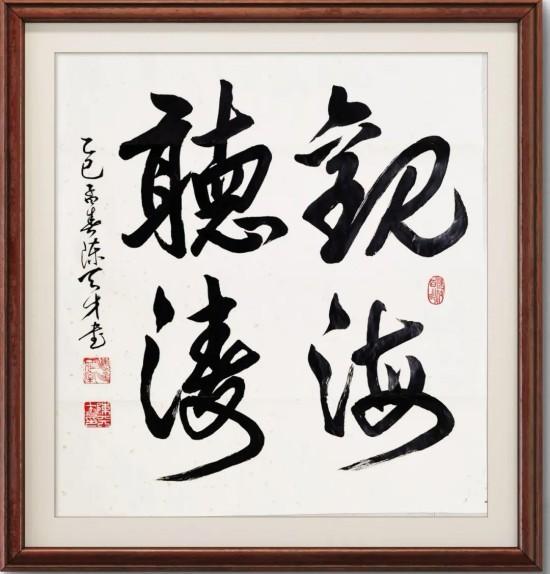 觀海
聽濤
乙巳孟春陈天才書